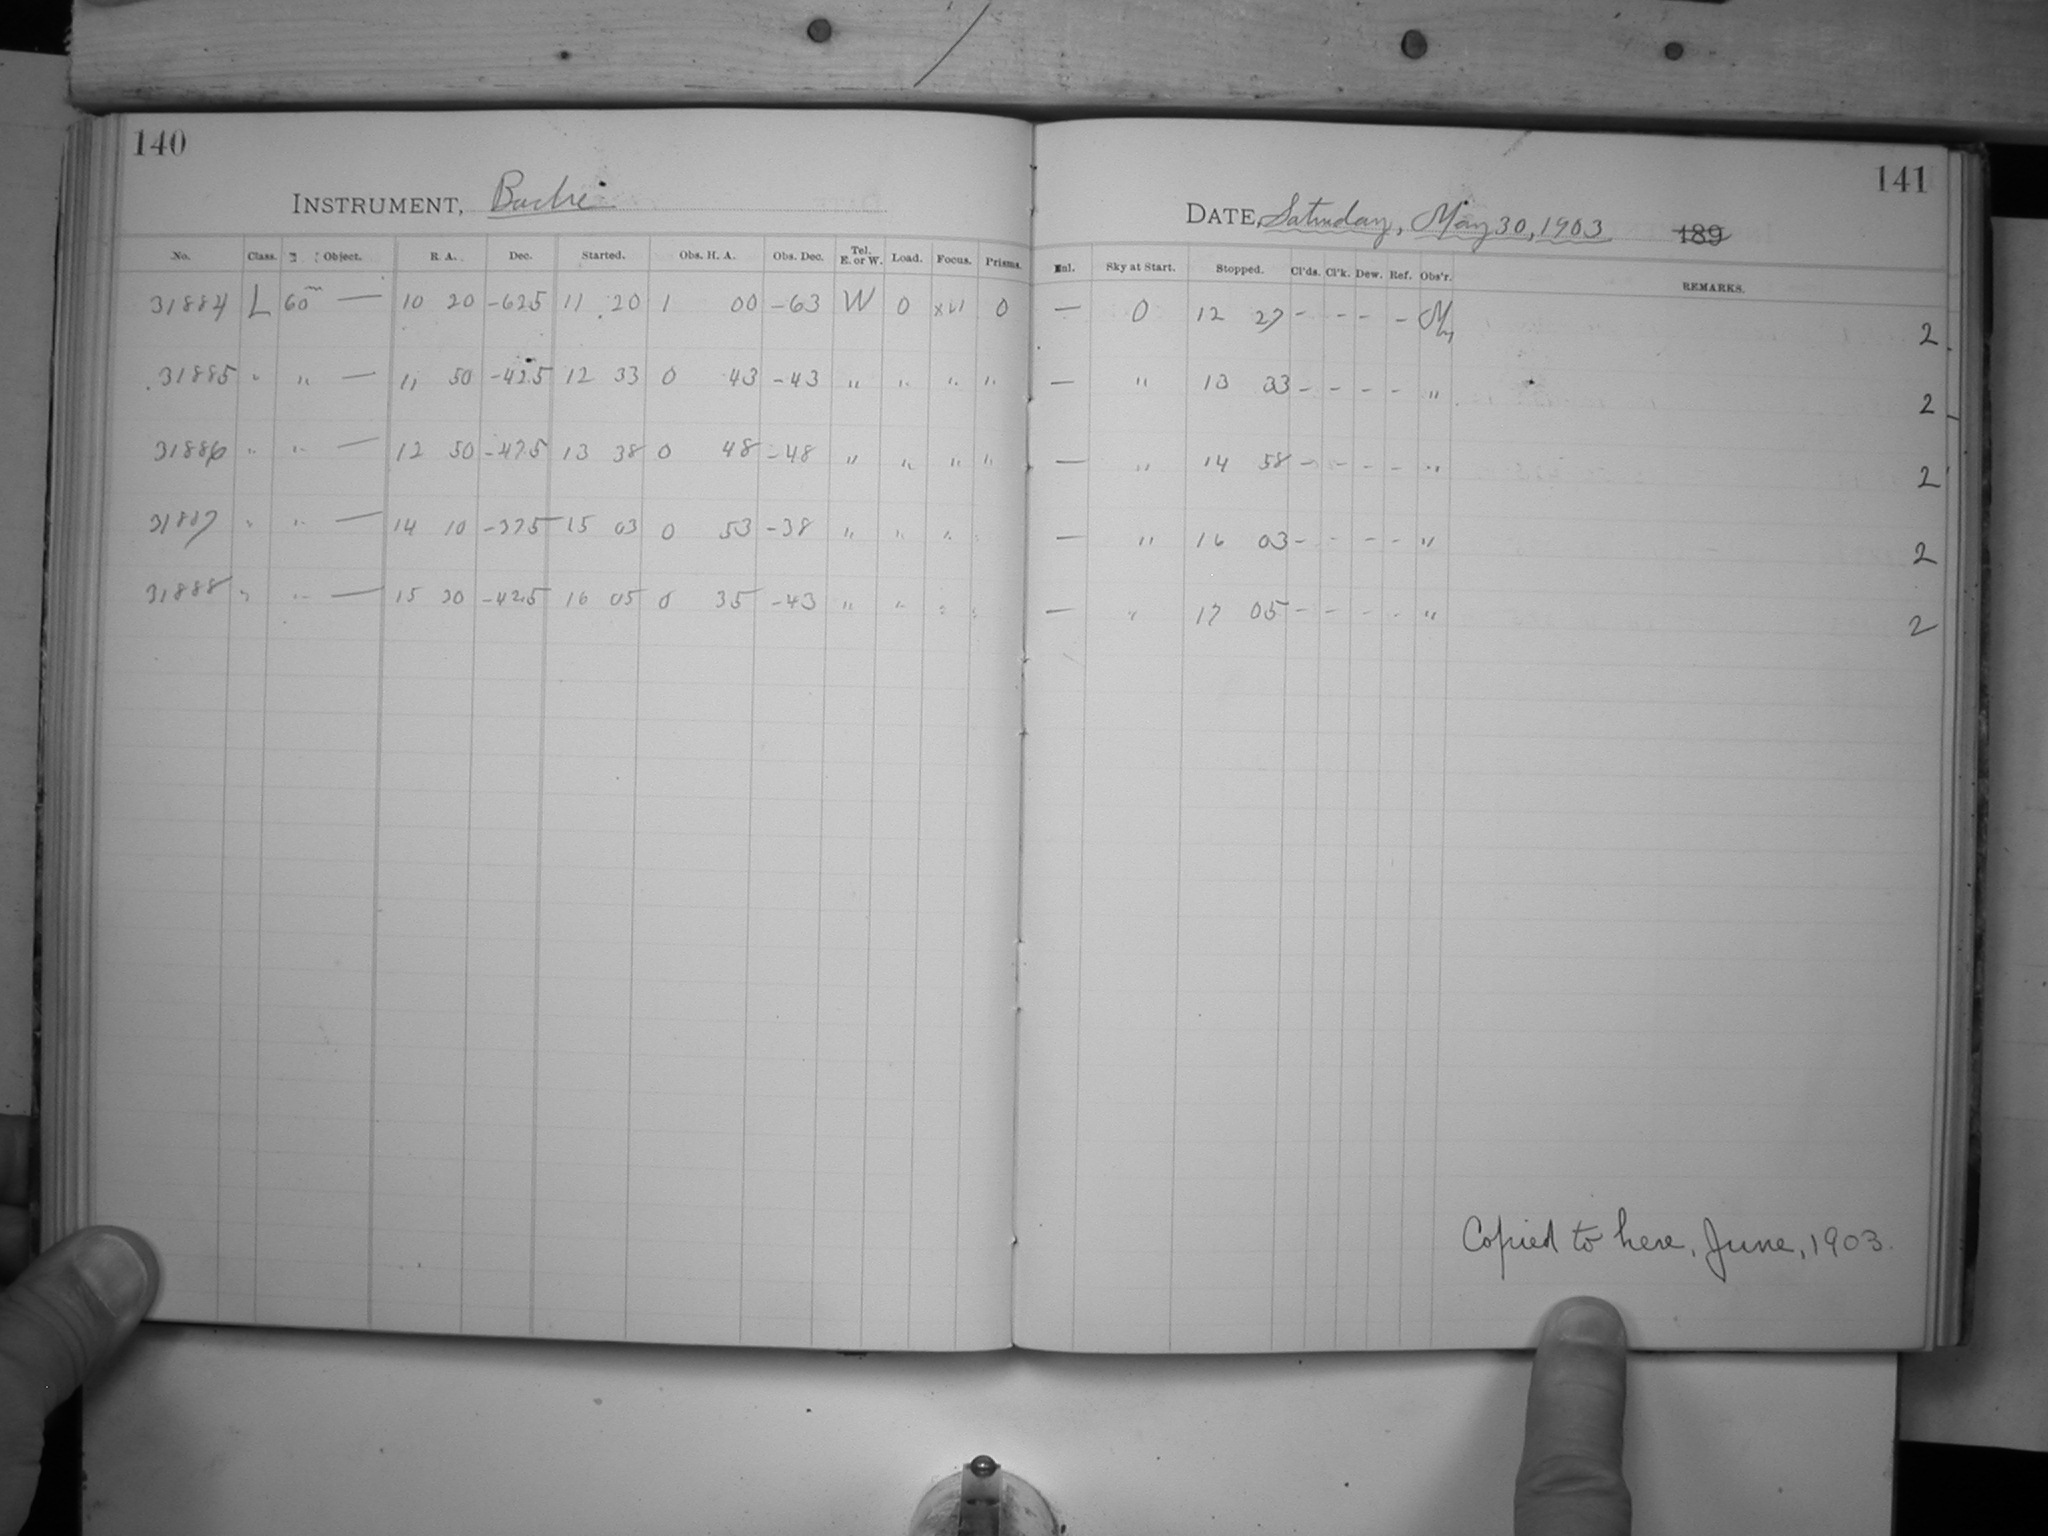 140
INSTRUMENT, Bache
No. Class. Object. R. A. Dec. Started. Obs. H. A. Obs. Dec. Tel. E. or W. Load. Focus. Prisms.
31884 L 60m — 10 20 -62.5 11 20 1 00 -63 W 0 xvi 0
31885 " " — 11 50 -42.5 12 33 0 43 -43 " " " "
31886 " " — 12 50 -47.5 13 38 0 48 -48 " " " "
31887 " " — 14 10 -37.5 15 03 0 53 -38 " " " "
31888 " " — 15 30 -42.5 16 05 0 35 -43 " " " "
141
DATE, Saturday, May 30, 1903 189
Enl. Sky at Start. Stopped. Cl'ds. Cl'k. Dew. Ref. Obs'r. REMARKS.
— 0 12 27 - - - - 2
— " 13 33 - - - - " 2
— " 14 58 - - - - " 2
— " 16 03 - - - - " 2
— " 17 05 - - - - " 2
Copied to here, June, 1903.